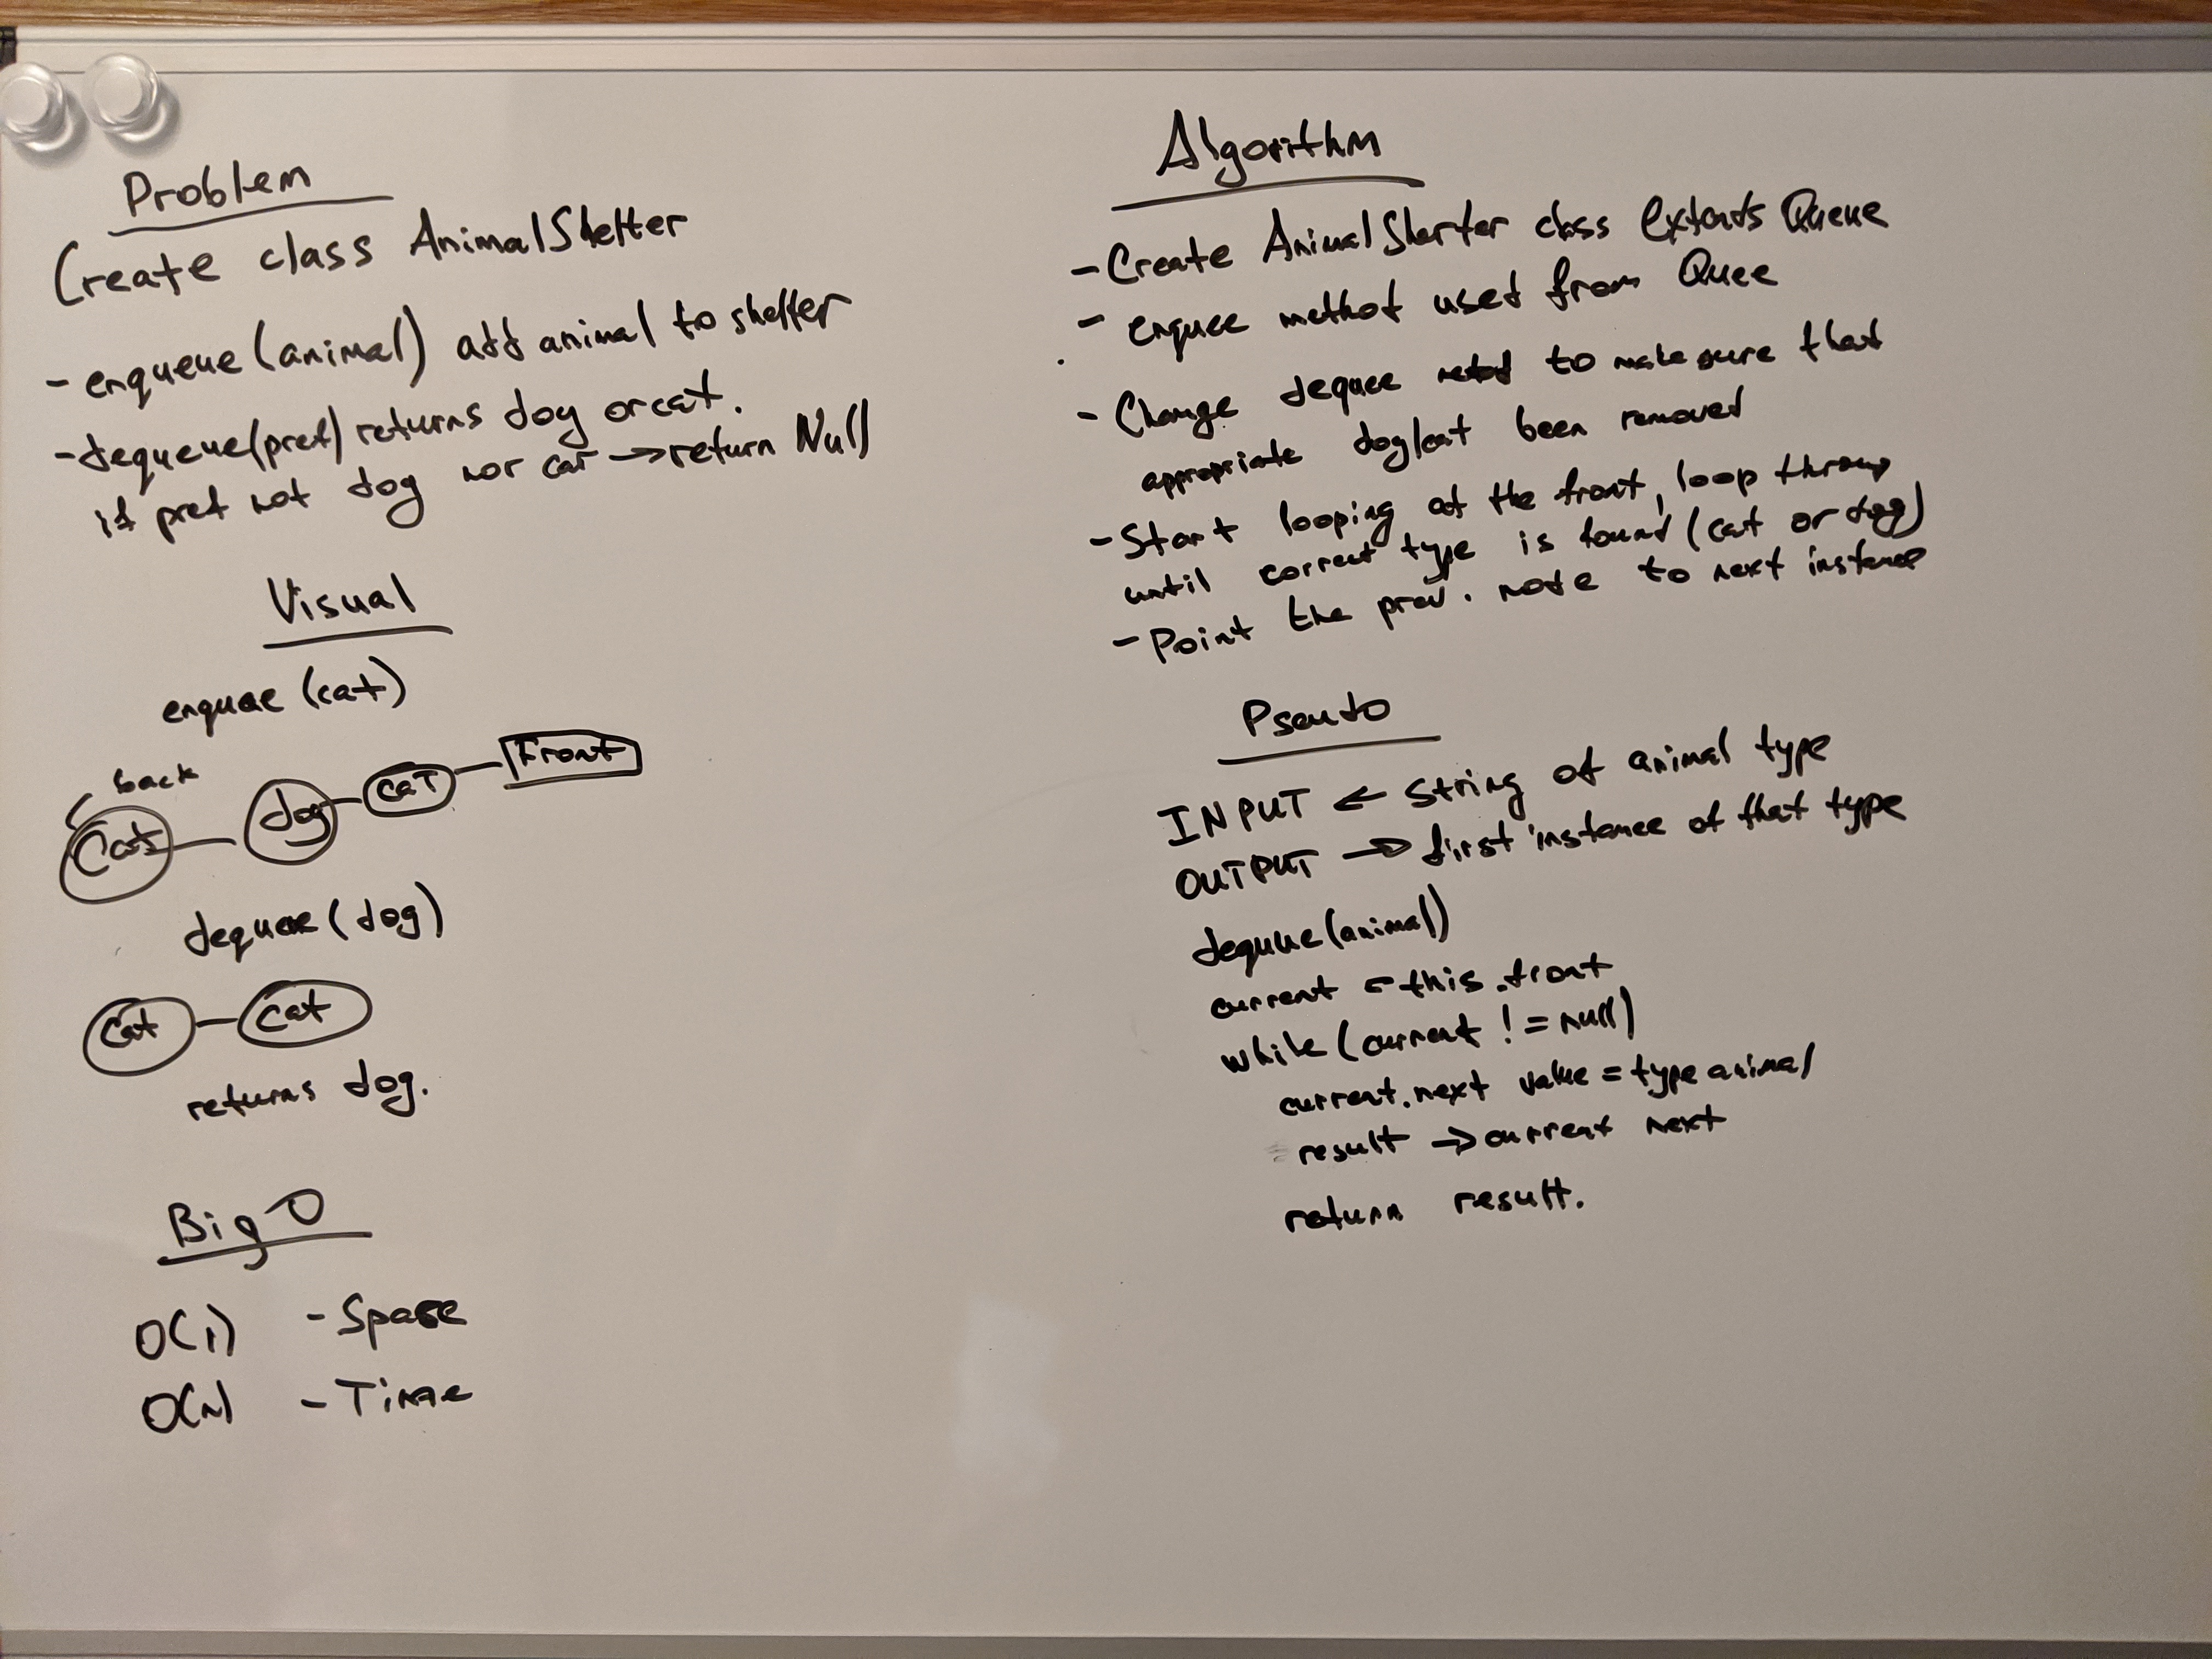 Problem
Create class AnimalShelter
- enqueue(animal) add animal to shelter
- dequeue(pref) returns dog or cat.
if pref not dog nor cat → return Null
Visual
enqueue (cat)
back
Cat
dog
cat
Front
dequeue (dog)
Cat
cat
returns dog.
Big O
O(1) - Space
O(n) - Time
Algorithm
- Create Animal Sherter class extends Queue
- enquee method used from Quee
- Change dequee to make sure that
appropriate dog/cat been removed
- Start looping at the front, loop throug
until correct type is found (cat or dog)
- Point the prev. node to next instance
Pseudo
INPUT ← String of animal type
OUTPUT → first instance of that type
dequeue(animal)
current ← this.front
while (current != null)
current.next value = type animal
result → current next
return result.